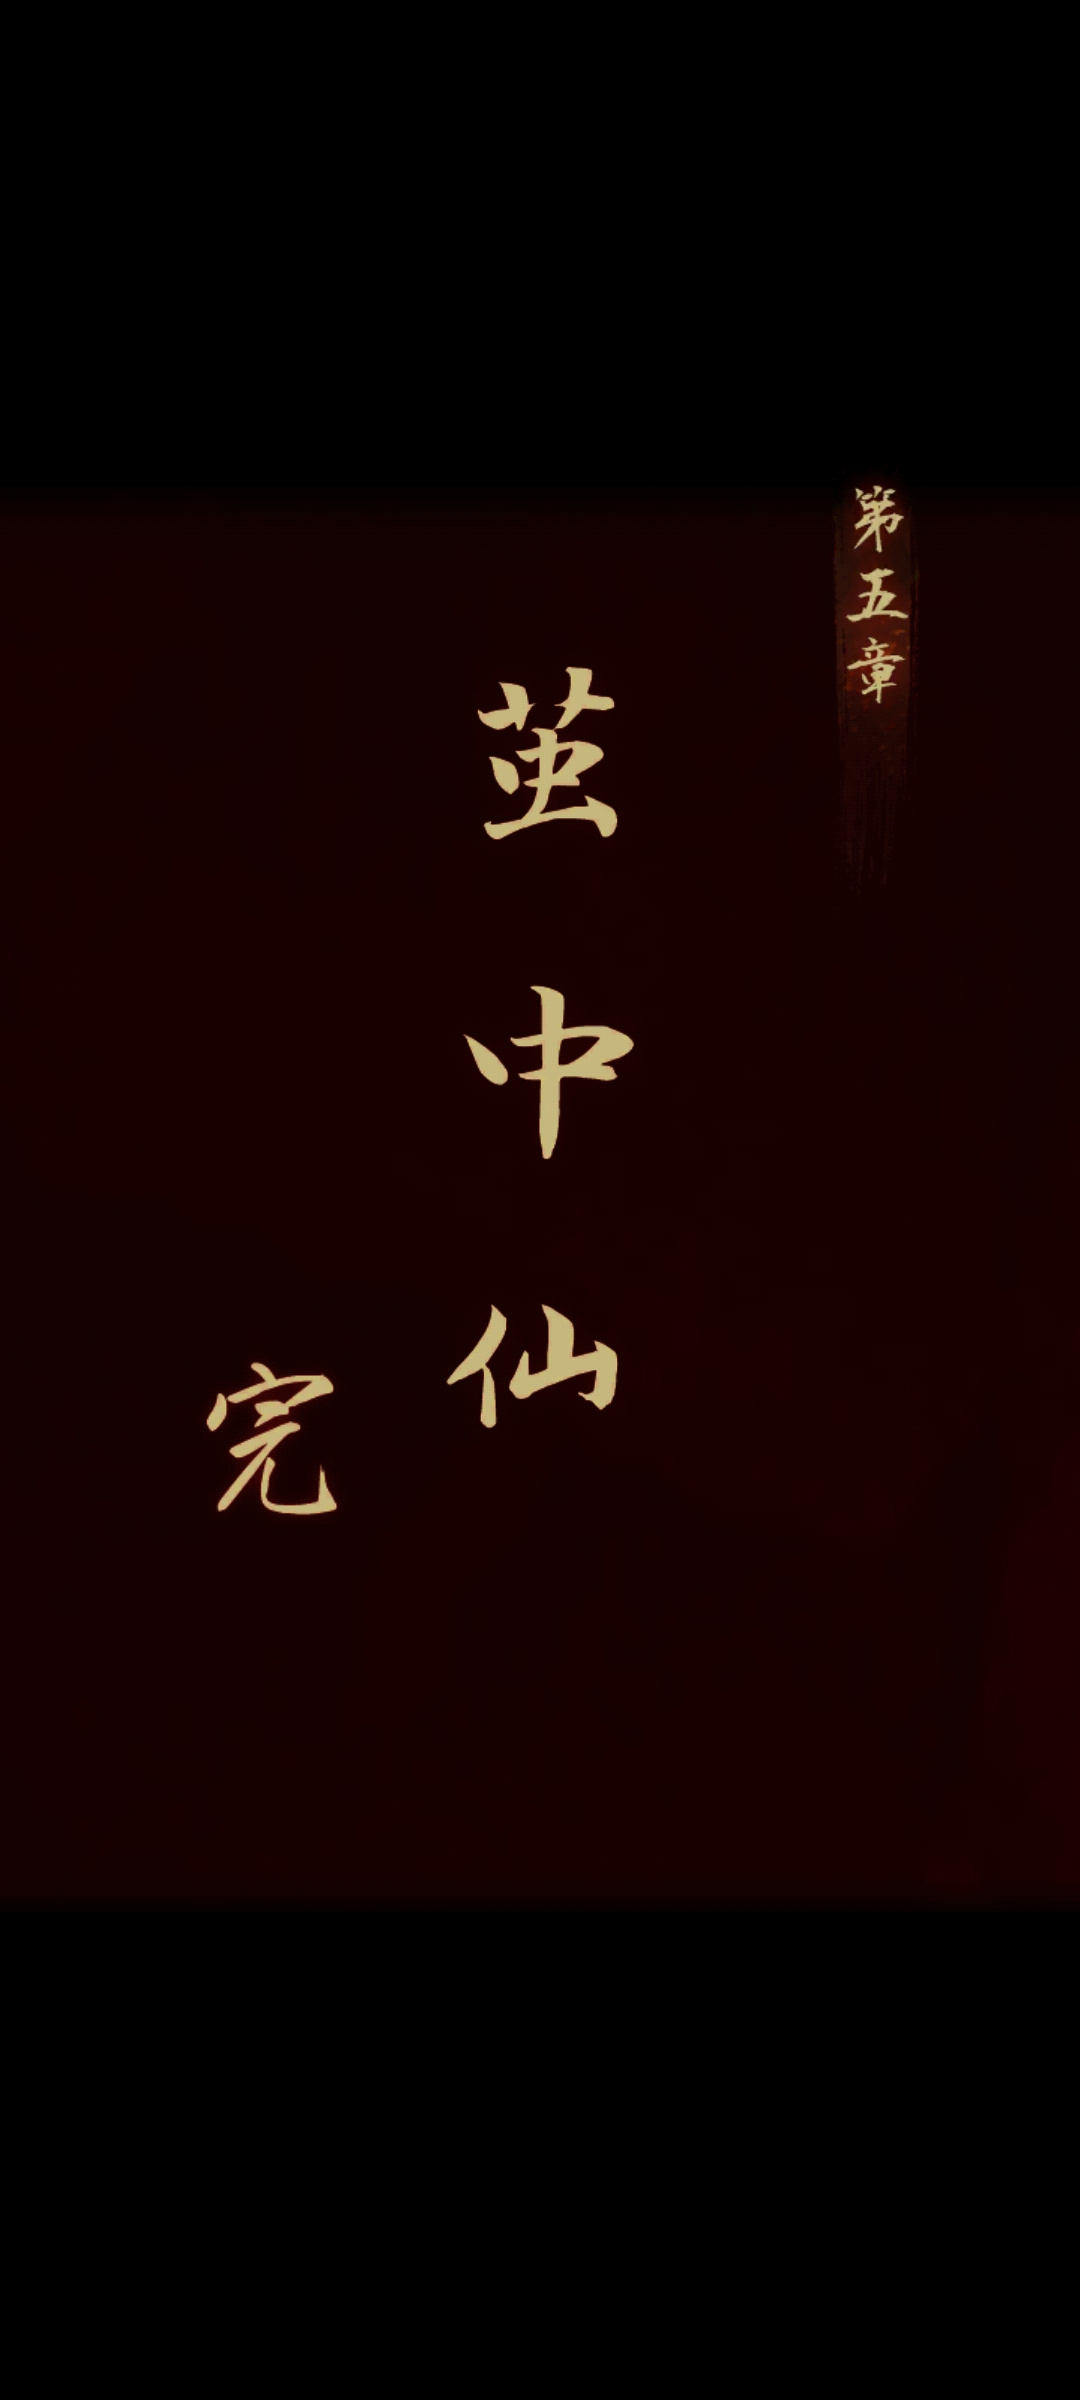 第五章
茧中仙
完